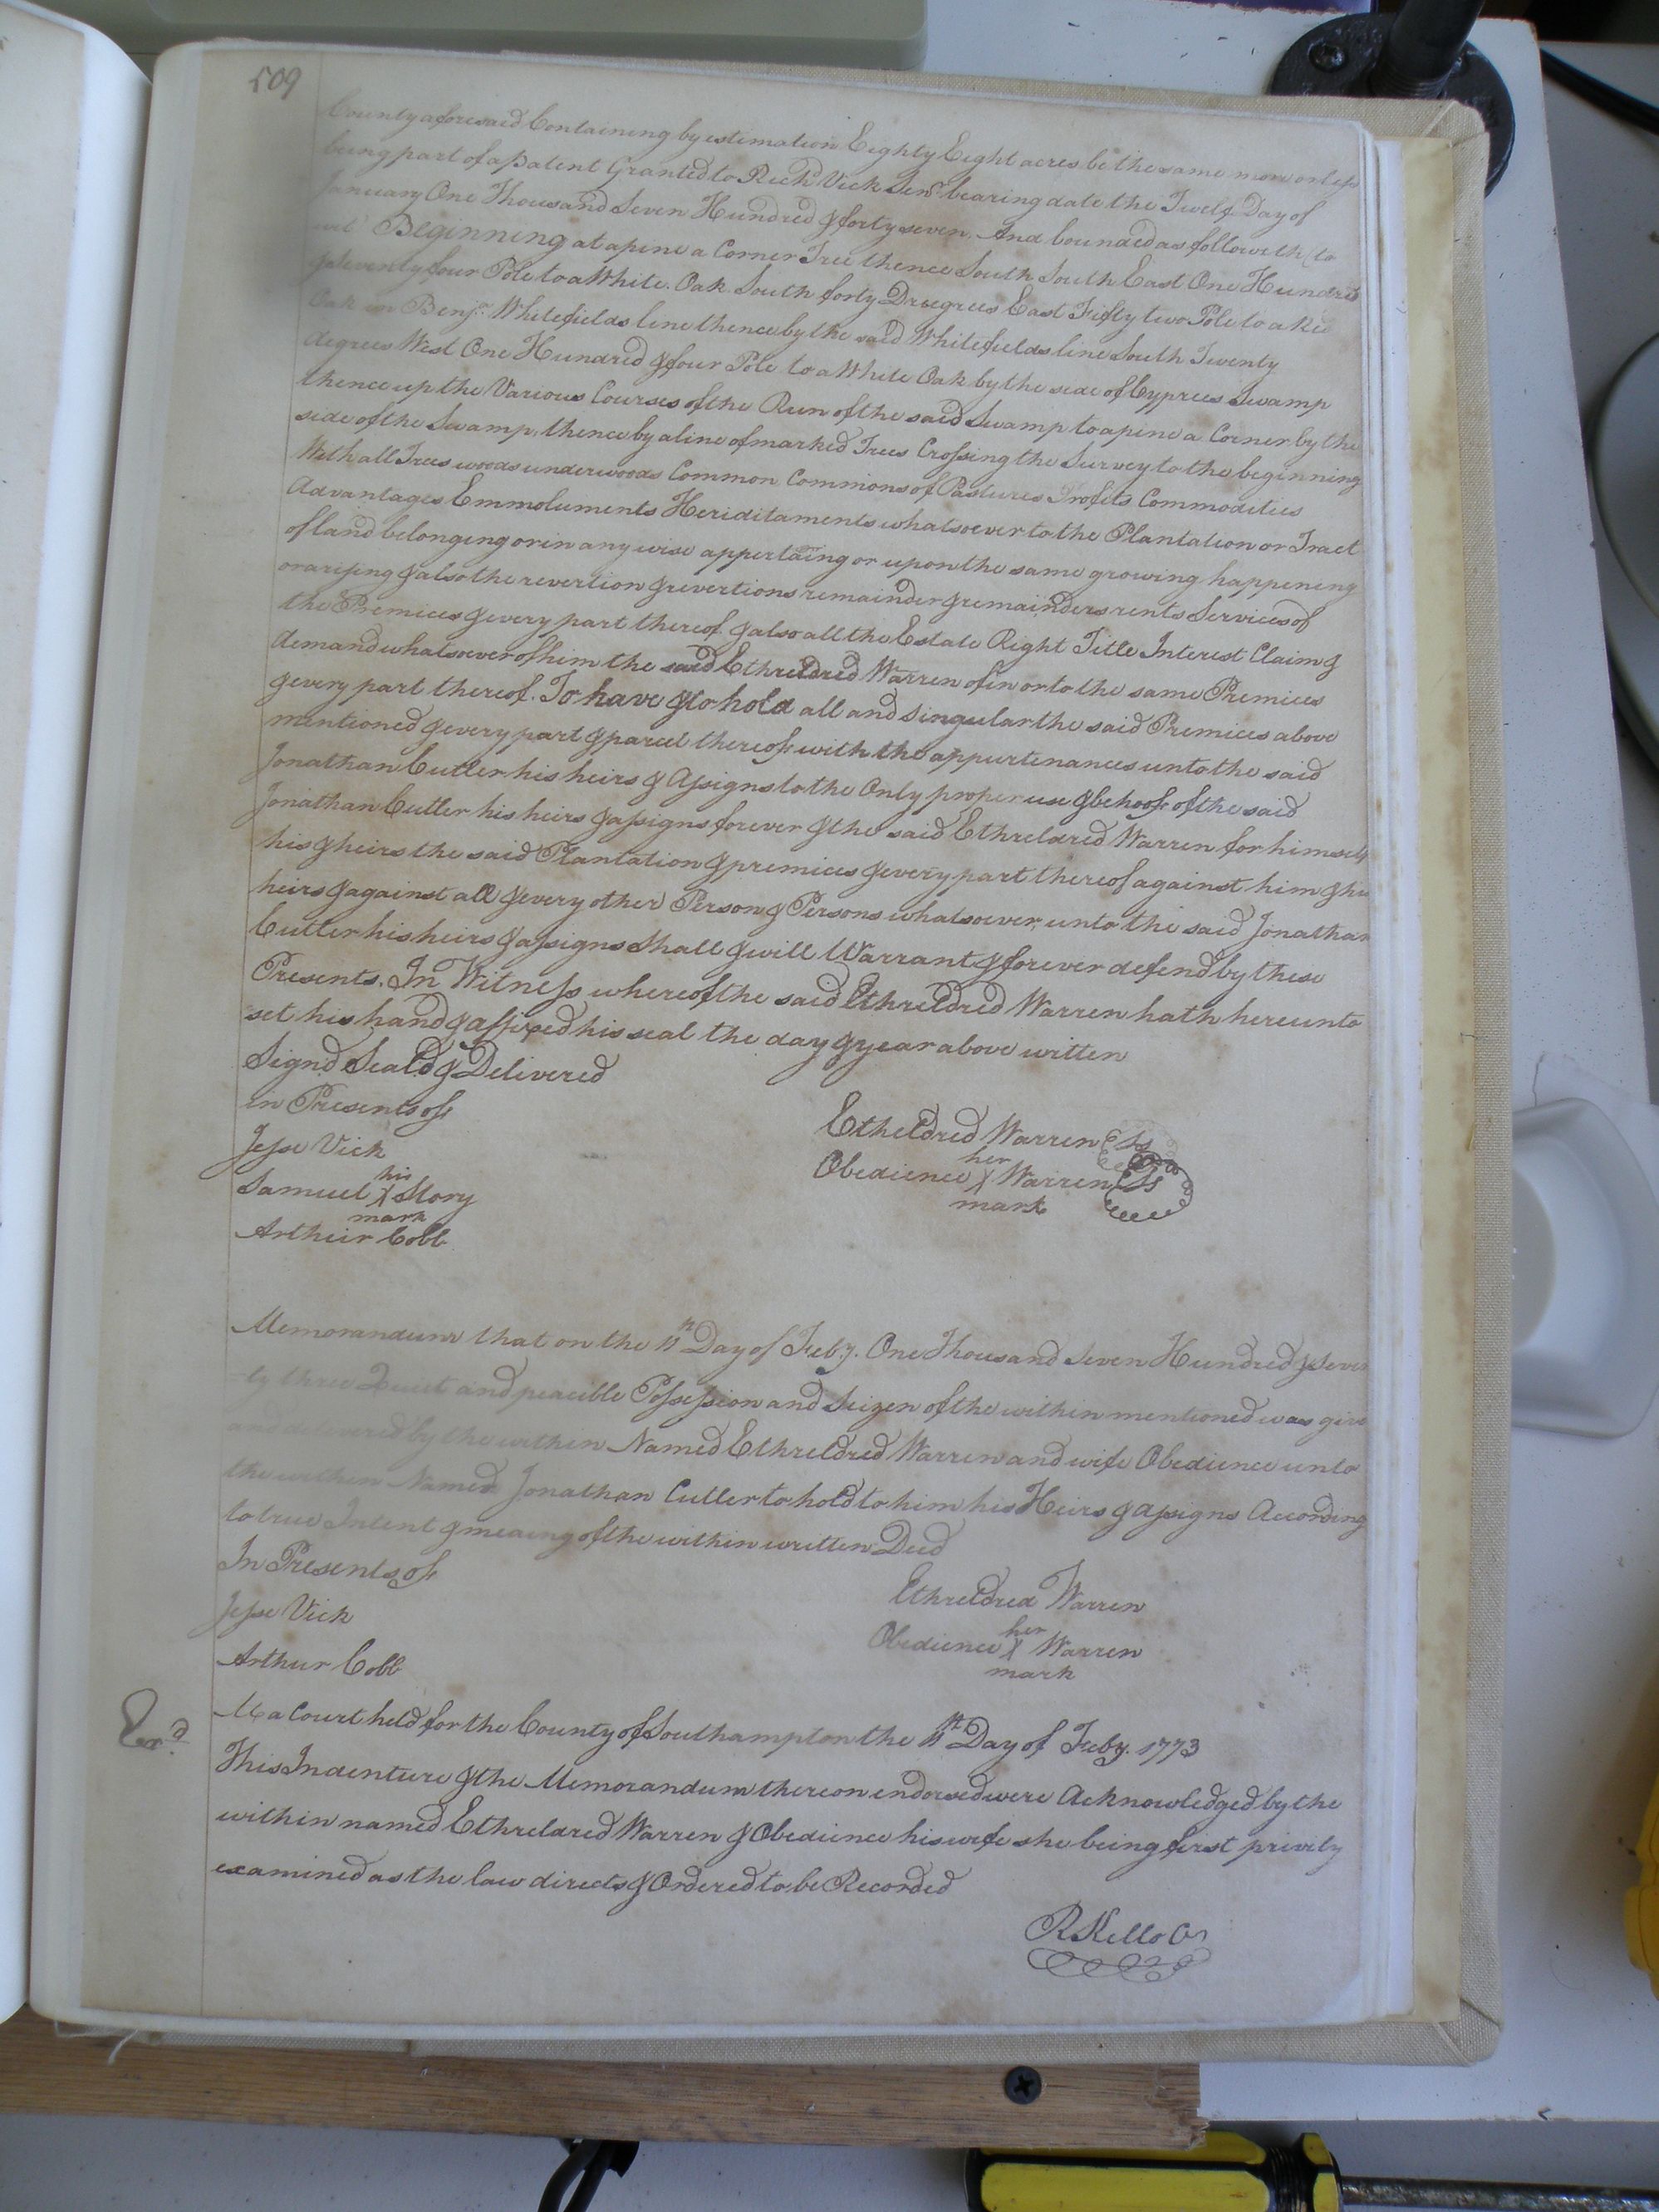 509
County aforesaid Containing by estimation Eighty Eight acres be the same more or less
being part of a patent Granted to Richd. Vick Senr. bearing date the Twelf Day of
January One Thousand Seven Hundred & forty seven. And bounded as followeth (to
wit) Beginning at a pine a Corner Tree thence South South East One Hundred
& Seventy four Pole to a White Oak South forty Dreegrees East Fifty two Pole to a Red
Oak in Benj. Whitefields line thence by the said Whitefields line South Twenty
degrees West One Hundred & four Pole to a White Oak by the side of Cyprees Swamp
thence up the Various Courses of the Run of the said Swamp to a pine a Corner by the
side of the Swamp, thence by a line of marked Trees Crossing the Survey to the beginning
With all Trees woods underwoods Common Commons of Pastures Profits Commodities
Advantages Emmoluments Heriditaments whatsoever to the Plantation or Tract
of land belonging or in any wise appertaing or upon the same growing happening
or arising & also the revertion & revertions remainder & remainders rents Services of
the Premices & every part thereof & also all the Estate Right Title Interest Claim &
demand whatsoever of him the said Ethreldred Warren of in or to the same Premices
& every part thereof. To have & to hold all and singular the said Premices above
mentioned & every part & parcel thereof with the appurtenances unto the said
Jonathan Cutler his heirs & Assigns to the Only proper use & behoof of the said
Jonathan Cutler his heirs & assigns forever & the said Ethreldred Warren for himself
his & heirs the said Plantation & premices & every part thereof against him & his
heirs & against all & every other Person & Persons whatsoever, unto the said Jonathan
Cutler his heirs & assigns Shall & will Warrant & forever defend by these
Presents. In Witness whereof the said Ethreldred Warren hath hereunto
set his hand & affixed his seal the day & year above witten
Signd Seald & Delivered
in Presents of
Etheldred Warren Ls
Jesse Vick
her
Obedience X Warren Ls
mark
his
Samuel X Story
mark
Arthur Cobb
Memorandum that on the 11th Day of Feby. One Thousand Seven Hundred & Seven
-ty three Quiet and peacible Possession and Seizen of the within mentioned was give
and delivered by the within Named Ethreldred Warren and wife Obedience unto
the within Named Jonathan Cutler to hold to him his Heirs & Assigns According
to true Intent & meaing of the within written Deed
In Presents of
Ethreldred Warren
Jesse Vick
her
Obedience X Warren
mark
Arthur Cobb
At a Court held for the County of Southampton the 11th Day of Feby. 1773
This Indenture & the Memorandum thereon endorsed were Acknowledged by the
within named Ethreldred Warren & Obedience his wife she being first privily
examined as the law directs & Ordered to be Recorded
R Kello